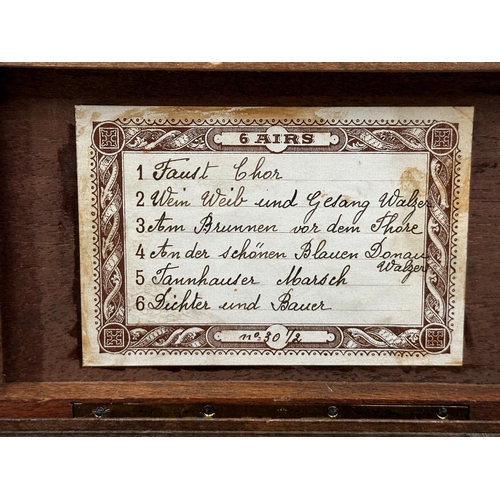 6 AIRS
1 Faust Chor
2 Wein Weib und Gesang Walzer
3 Am Brunnen vor dem Thore
4 An der schönen Blauen Donau
Walzer
5 Tannhauser Marsch
6 Dichter und Bauer
no. 30 1/2